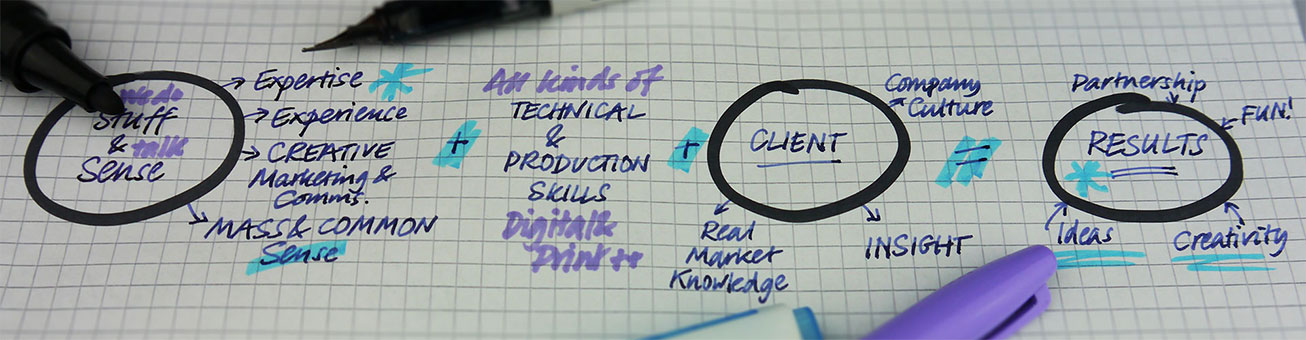 We do
Stuff
& talk
Sense
Expertise
Experience
CREATIVE
Marketing &
Comms.
MASS & COMMON
Sense
+
All kinds of
TECHNICAL
&
PRODUCTION
SKILLS
Digital &
Print ++
+
CLIENT
Company
Culture
Real
Market
Knowledge
INSIGHT
=
RESULTS
Partnership
FUN!
Ideas
Creativity